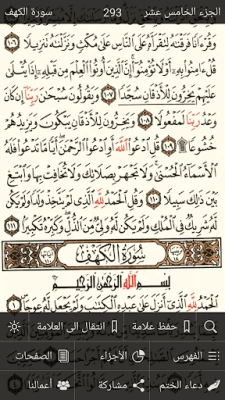 الجزء الخامس عشر 293 سورة الكهف
وَقُرْءَانًا فَرَقْنَٰهُ لِتَقْرَأَهُۥ عَلَى ٱلنَّاسِ عَلَىٰ مُكْثٍ وَنَزَّلْنَٰهُ تَنزِيلًا ١٠٦
قُلْ ءَامِنُوا۟ بِهِۦٓ أَوْ لَا تُؤْمِنُوٓا۟ إِنَّ ٱلَّذِينَ أُوتُوا۟ ٱلْعِلْمَ مِن قَبْلِهِۦٓ إِذَا يُتْلَىٰ
عَلَيْهِمْ يَخِرُّونَ لِلْأَذْقَانِ سُجَّدًا ١٠٧ وَيَقُولُونَ سُبْحَٰنَ رَبِّنَآ إِن كَانَ
وَعْدُ رَبِّنَا لَمَفْعُولًا ١٠٨ وَيَخِرُّونَ لِلْأَذْقَانِ يَبْكُونَ وَيَزِيدُهُمْ
خُشُوعًا ١٠٩ قُلِ ٱدْعُوا۟ ٱللَّهَ أَوِ ٱدْعُوا۟ ٱلرَّحْمَٰنَ أَيًّا مَّا تَدْعُوا۟ فَلَهُ
ٱلْأَسْمَآءُ ٱلْحُسْنَىٰ وَلَا تَجْهَرْ بِصَلَاتِكَ وَلَا تُخَافِتْ بِهَا وَٱبْتَغِ
بَيْنَ ذَٰلِكَ سَبِيلًا ١١٠ وَقُلِ ٱلْحَمْدُ لِلَّهِ ٱلَّذِى لَمْ يَتَّخِذْ وَلَدًا وَلَمْ يَكُن
لَّهُۥ شَرِيكٌ فِى ٱلْمُلْكِ وَلَمْ يَكُن لَّهُۥ وَلِىٌّ مِّنَ ٱلذُّلِّ وَكَبِّرْهُ تَكْبِيرًۢا ١١١
سُورَةُ ٱلْكَهْفِ
بِسْمِ ٱللَّهِ ٱلرَّحْمَٰنِ ٱلرَّحِيمِ
ٱلْحَمْدُ لِلَّهِ ٱلَّذِىٓ أَنزَلَ عَلَىٰ عَبْدِهِ ٱلْكِتَٰبَ وَلَمْ يَجْعَل لَّهُۥ عِوَجَا ١
حفظ علامة انتقال الى العلامة
الفهرس الأجزاء الصفحات
دعاء الختم مشاركة أعمالنا